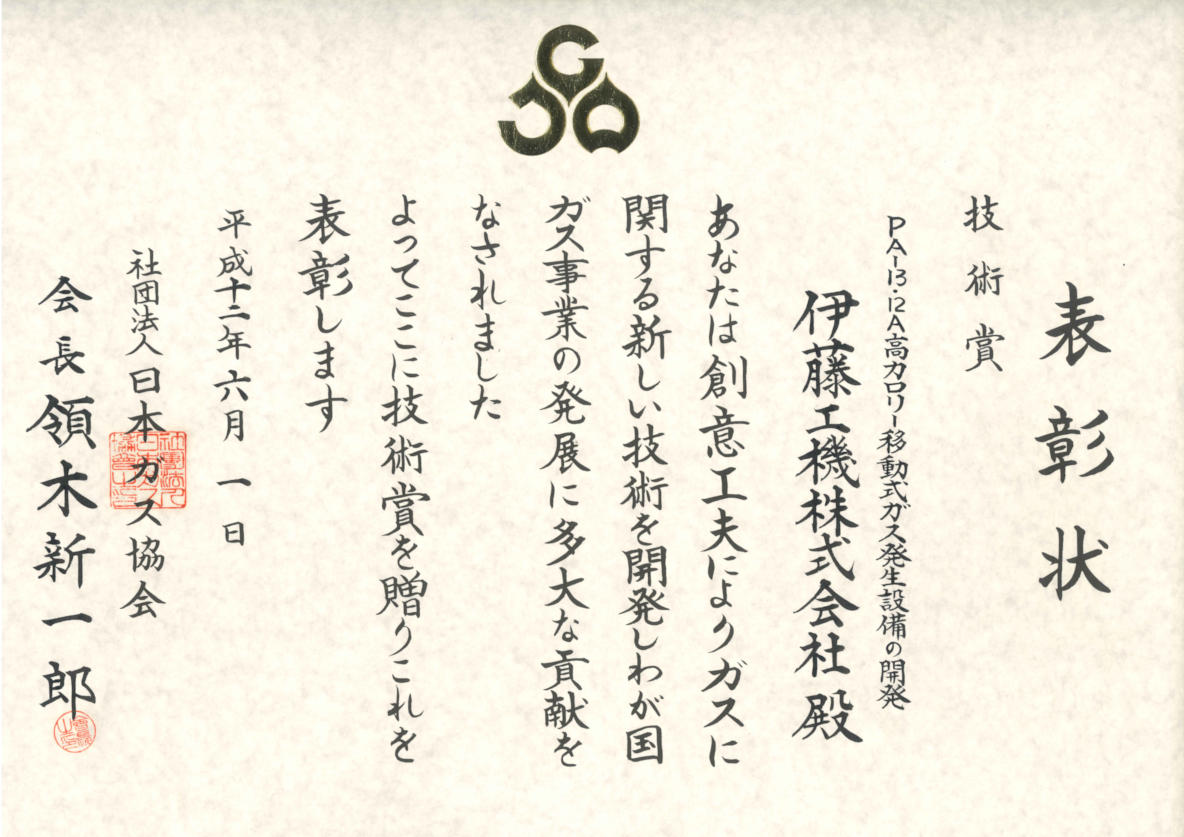 表彰状
技術賞
PA-13・12A高カロリー移動式ガス発生設備の開発
伊藤工機株式会社殿
あなたは創意工夫によりガスに
関する新しい技術を開発しわが国
ガス事業の発展に多大な貢献を
なされました
よってここに技術賞を贈りこれを
表彰します
平成十二年六月一日
社団法人日本ガス協会
会長領木新一郎